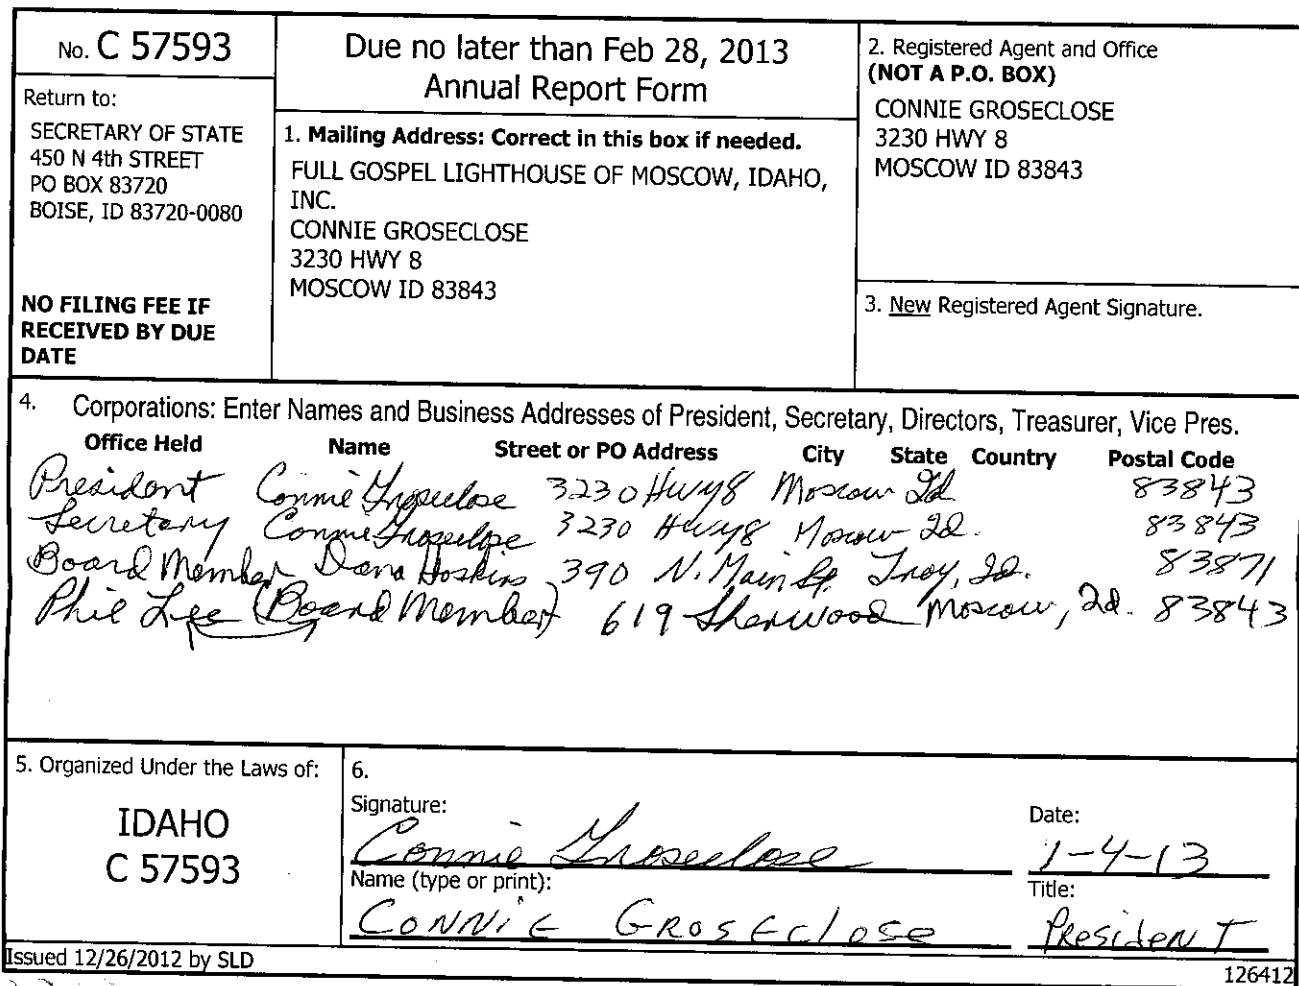 No. C 57593
Return to:
SECRETARY OF STATE
450 N 4th STREET
PO BOX 83720
BOISE, ID 83720-0080
NO FILING FEE IF
RECEIVED BY DUE
DATE
Due no later than Feb 28, 2013
Annual Report Form
1. Mailing Address: Correct in this box if needed.
FULL GOSPEL LIGHTHOUSE OF MOSCOW, IDAHO,
INC.
CONNIE GROSECLOSE
3230 HWY 8
MOSCOW ID 83843
2. Registered Agent and Office
(NOT A P.O. BOX)
CONNIE GROSECLOSE
3230 HWY 8
MOSCOW ID 83843
3. New Registered Agent Signature.
4. Corporations: Enter Names and Business Addresses of President, Secretary, Directors, Treasurer, Vice Pres.
Office Held Name Street or PO Address City State Country Postal Code
President Connie Groseclose 3230 Hwy 8 Moscow Id. 83843
Secretary Connie Groseclose 3230 Hwy 8 Moscow Id. 83843
Board Member Dana Hoskins 390 N. Main St. Troy, Id. 83871
Phil Lee (Board Member) 619 Sherwood Moscow, Id. 83843
5. Organized Under the Laws of:
IDAHO
C 57593
6.
Signature:
Connie Groseclose
Name (type or print):
CONNIE GROSEclose
Date:
1-4-13
Title:
PResidenT
Issued 12/26/2012 by SLD
126412